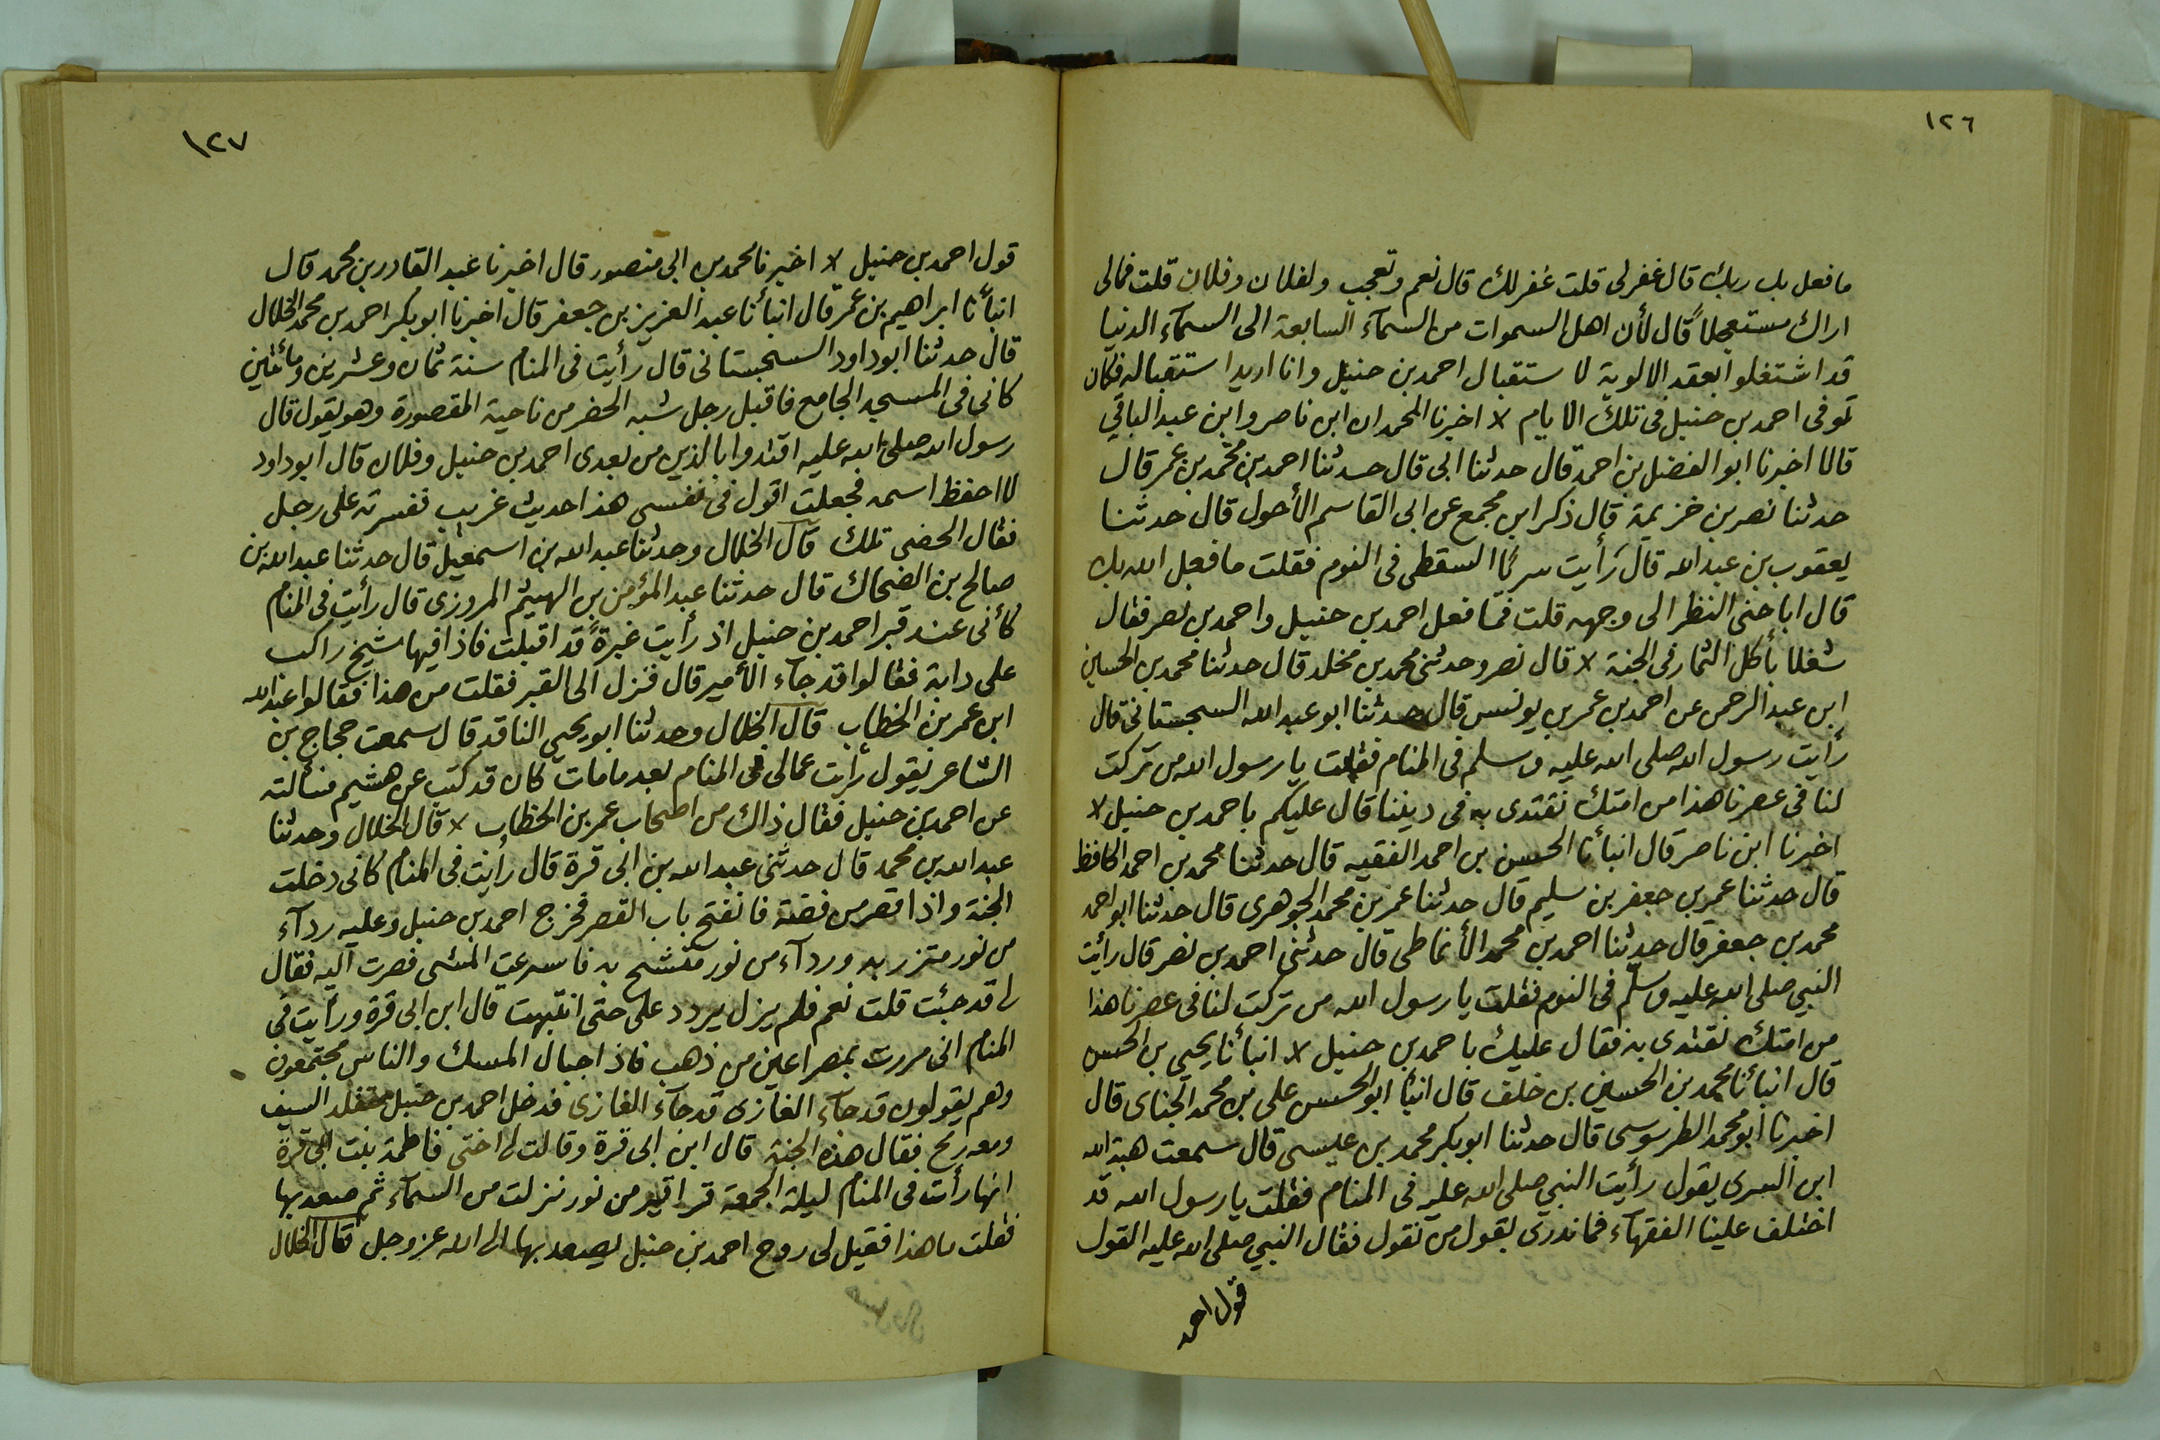 ١٢٦
ما فعل بك ربك قال غفر لى قلت غفر لك قال نعم وتعجب ولفلان وفلان قلت فمالى
اراك مستعجلاً قال لأن اهل السموات من السمآء السابعة الى السمآء الدنيا
قد اشتغلوا بعقد الالوية لا ستقبال احمد بن حنبل وانا اريد استقباله فكان
توفى احمد بن حنبل فى تلك الايام × اخبرنا المحمدان ابن ناصر وابن عبد الباقى
قالا اخبرنا ابو الفضل بن احمد قال حدثنا ابى قال حدثنا احمد بن محمد بن عمر قال
حدثنا نصر بن خزيمة قال ذكر ابن مجمع عن ابى القاسم الأحول قال حدثنا
يعقوب بن عبد الله قال رأيت سريًا السقطى فى النوم فقلت ما فعل الله بك
قال اباحنى النظر الى وجهه قلت فما فعل احمد بن حنبل واحمد بن نصر فقال
شغلا بأكل الثمار فى الجنة × قال نصر وحدثنى محمد بن مخلد قال حدثنا محمد بن الحسين
ابن عبد الرحمن عن احمد بن عمر بن يونس قال حدثنا ابو عبد الله السجستانى قال
رأيت رسول الله صلى الله عليه وسلم فى المنام فقلت يا رسول الله من تركت
لنا فى عصرنا هذا من امتك نقتدى به فى ديننا قال عليكم باحمد بن حنبل ×
اخبرنا ابن ناصر قال انبأنا الحسن بن احمد الفقيه قال حدثنا محمد بن احمد الحافظ
قال حدثنا عمر بن جعفر بن سليم قال حدثنا عمر بن محمد الجوهرى قال حدثنا ابو احمد
محمد بن جعفر قال حدثنا احمد بن محمد الأنماطى قال حدثنى احمد بن نصر قال رأيت
النبي صلى الله عليه وسلم فى النوم فقلت يا رسول الله من تركت لنا فى عصرنا هذا
من امتك نقتدى به فقال عليك باحمد بن حنبل × انبأنا يحيى بن الحسن
قال انبأنا محمد بن الحسين بن خلف قال انبأ ابو الحسن على بن محمد الجناى قال
اخبرنا ابو محمد الطرسوسى قال حدثنا ابو بكر محمد بن عيسى قال سمعت هبة الله
ابن السرى يقول رأيت النبي صلى الله عليه فى المنام فقلت يا رسول الله قد
اختلف علينا الفقهآء فما ندرى بقول من نقول فقال النبي صلى الله عليه القول
قول احمد
١٢٧
قول احمد بن حنبل × اخبرنا محمد بن ابى منصور قال اخبرنا عبد القادر بن محمد قال
انبأنا ابراهيم بن عمر قال انبأنا عبد العزيز بن جعفر قال اخبرنا ابو بكر احمد بن محمد الخلال
قال حدثنا ابو داود السجستانى قال رأيت فى المنام سنة ثمان وعشرين ومائتين
كانى فى المسجد الجامع فاقبل رجل شبه الخضر من ناحية المقصورة وهو يقول قال
رسول الله صلى الله عليه اقتدوا بالذين من بعدى احمد بن حنبل وفلان قال ابو داود
لا احفظ اسمه فجعلت اقول فى نفسى هذا حديث غريب ففسرته على رجل
فقال الخضر تلك قال الخلال وحدثنا عبد الله بن اسمعيل قال حدثنا عبد الله بن
صالح بن الضحاك قال حدثنا عبد المؤمن بن الهيثم المروزى قال رأيت فى المنام
كأنى عند قبر احمد بن حنبل اذ رأيت غبرةً قد اقبلت فاذا فيها شيخ راكب
على دابة فقالوا قد جاء الأمير قال فنزل الى القبر فقلت من هذا فقالوا عبد الله
ابن عمر بن الخطاب قال الخلال وحدثنا ابو يحيى الناقد قال سمعت حجاج بن
الشاعر يقول رأيت عمالى فى المنام بعد ما مات كان قد كتب عن هشيم فسألته
عن احمد بن حنبل فقال ذاك من اصحاب عمر بن الخطاب × قال الخلال وحدثنا
عبد الله بن محمد قال حدثنى عبد الله بن ابى قرة قال رأيت فى المنام كانى دخلت
الجنة واذا قصر من فضة فانفتح باب القصر فخرج احمد بن حنبل وعليه ردآء
من نور متزر به وردآء من نور متشح به فاسرعت المشى فصرت اليه فقال
لى قد جئت قلت نعم فلم يزل يردد على حتى انتبهت قال ابن ابى قرة ورأيت فى
المنام انى مررت بمصراعين من ذهب فاذا جبال المسك والناس مجتمعون
وهم يقولون قد جآء الغازى قد جآء الغازى فدخل احمد بن حنبل متقلد السيف
ومعه رمح فقال هذه الجنة قال ابن ابى قرة وقالت لى اختى فاطمة بنت ابى قرة
انها رأت فى المنام ليلة الجمعة قراقير من نور نزلت من السمآء ثم صعد بها
فقلت ما هذا فقيل لى روح احمد بن حنبل يصعد بها الى الله عز وجل قال الخلال